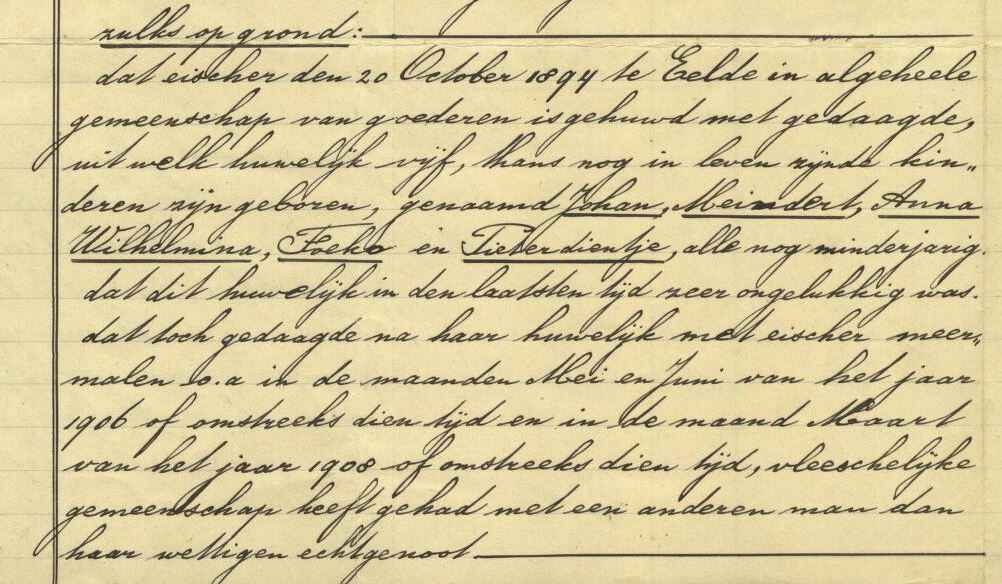 zulks op grond:
dat eischer den 20 October 1894 te Eelde in algeheele
gemeenschap van goederen is gehuwd met gedaagde,
uit welk huwelijk vijf, thans nog in leven zijnde kin„
deren zijn geboren, genaamd Johan, Meindert, Anna
Wilhelmina, Foeko en Pieterdientje, alle nog minderjarig.
dat dit huwelijk in den laatsten tijd zeer ongelukkig was.
dat toch gedaagde na haar huwelijk met eischer meer„
malen o.a in de maanden Mei en Juni van het jaar
1906 of omstreeks dien tijd en in de maand Maart
van het jaar 1908 of omstreeks dien tijd, vleeschelijke
gemeenschap heeft gehad met een anderen man dan
haar wettigen echtgenoot